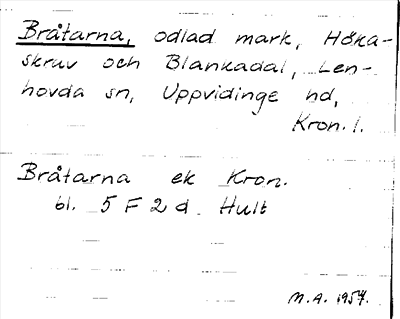 Bråtarna, odlad mark, Höka-
skruv och Blankadal, Len-
hovda sn, Uppvidinge hd,
Kron. l.
Bråtarna ek Kron.
bl. 5 F 2 d Hult
M.A. 1957.